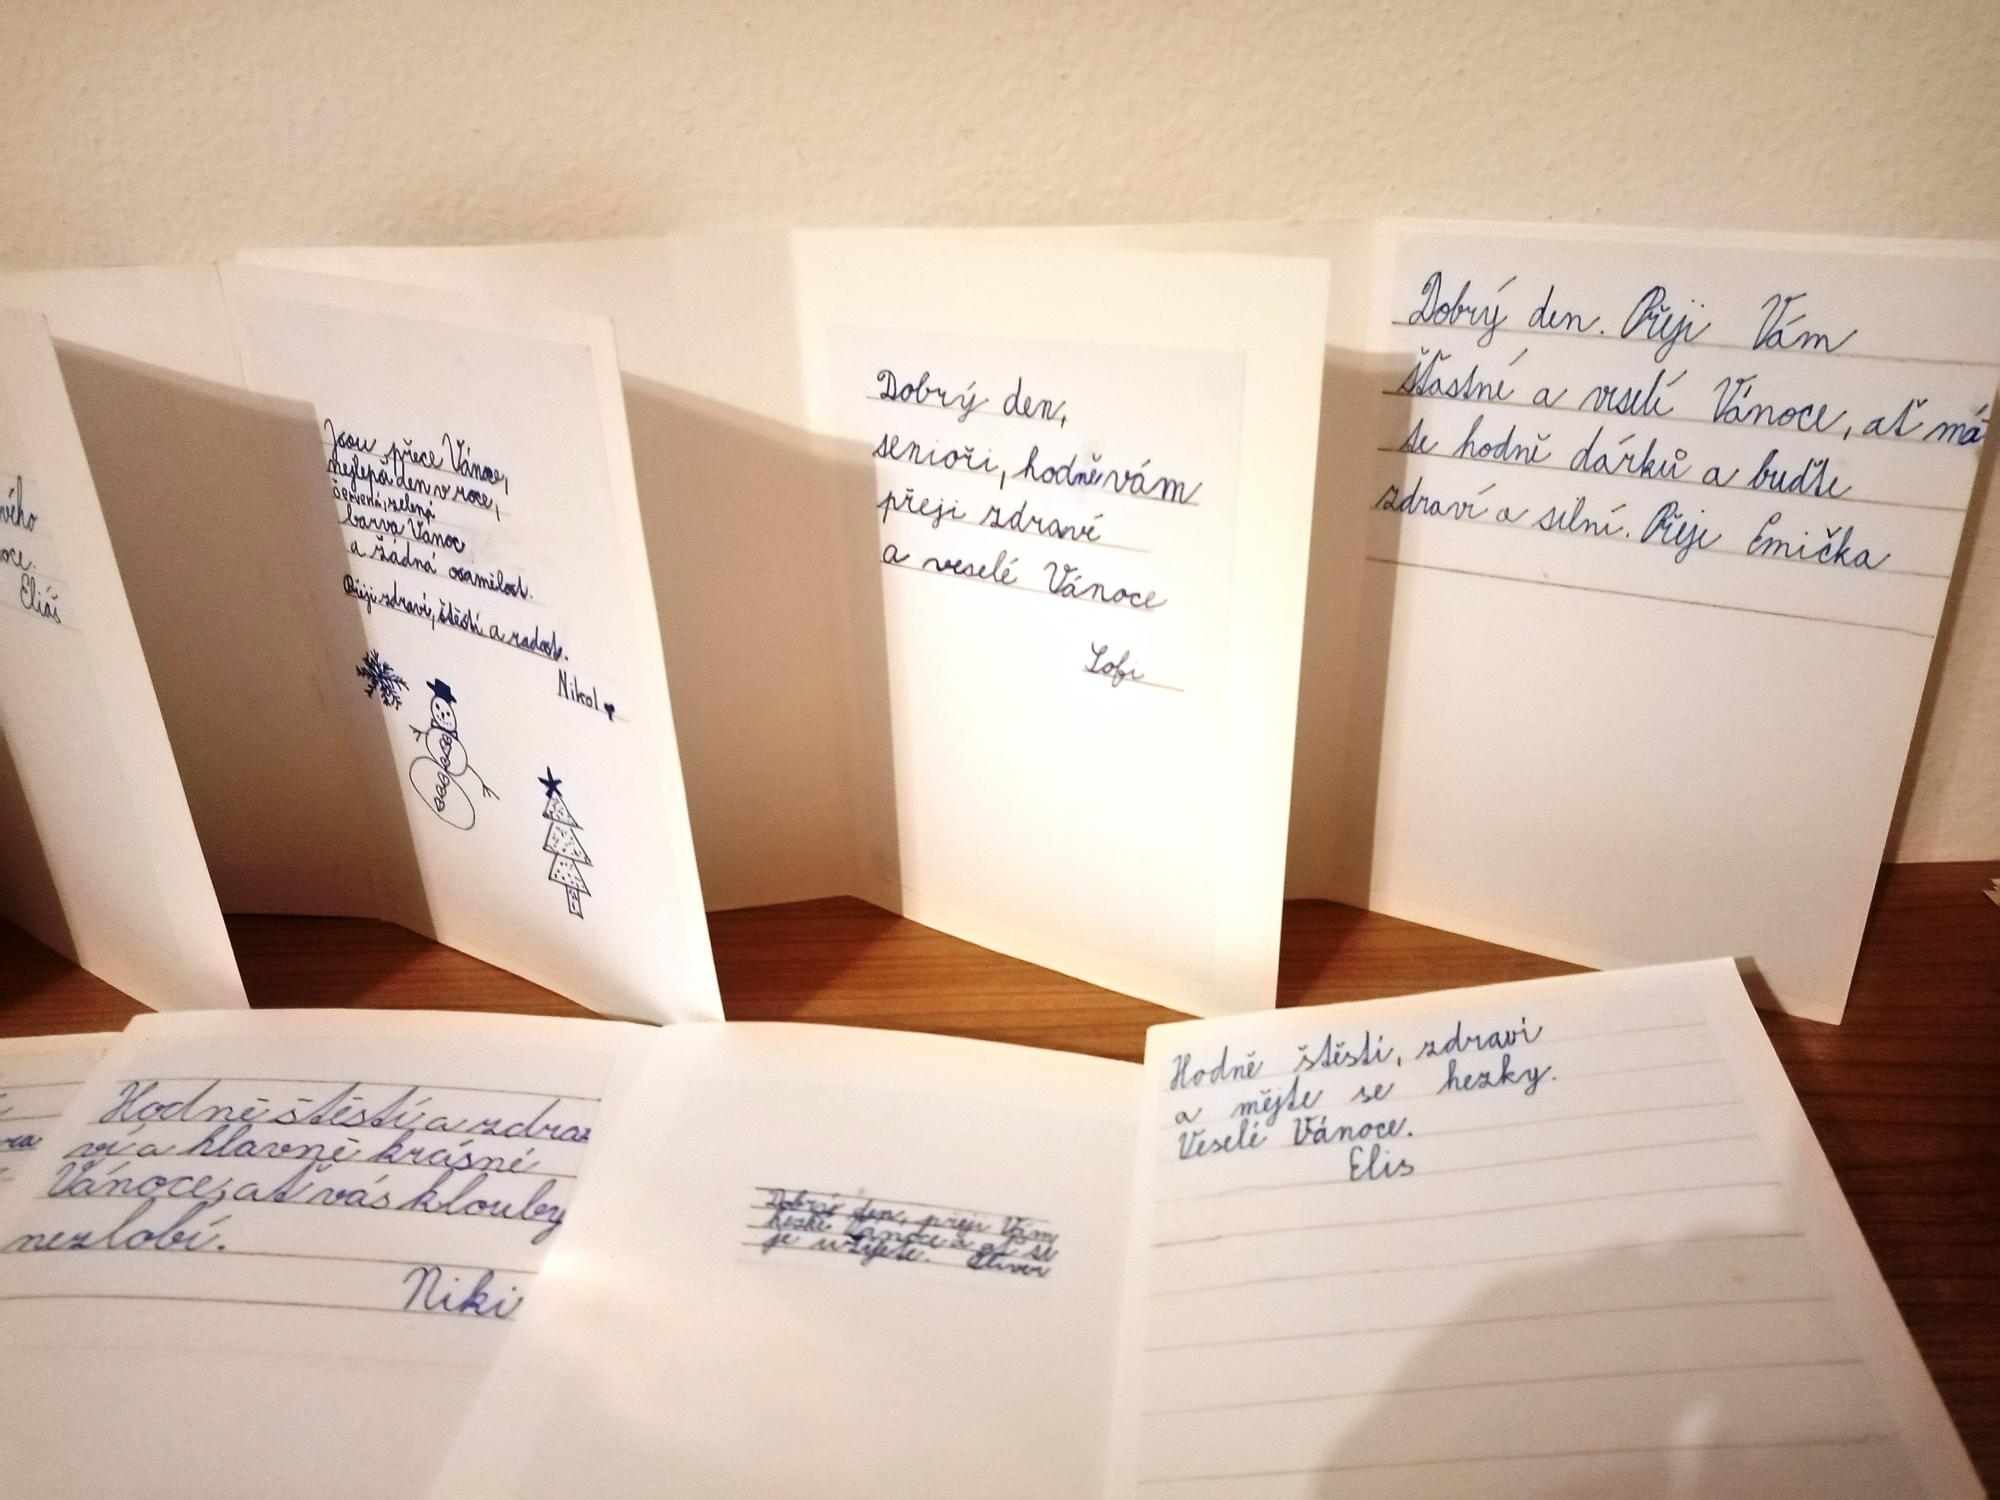 vého
oce.
Eliáš
Jsou přece Vánoce,
nejlepší den v roce,
červená, zelená
barva Vánoc
a žádná osamělost.
Přeji zdraví, štěstí a radost.
Nikol
Dobrý den,
senioři, hodně vám
přeji zdraví
a veselé Vánoce
Sofi
Dobrý den. Přeji Vám
šťastné a veselí Vánoce, ať má
te hodně dárků a buďte
zdraví a silní. Přeje Emička
Hodně štěstí a zdra
ví a hlavně krásné
Vánoce, ať vás klouby
nezlobí.
Niki
Dobrý den, přeji Vám
hezké Vánoce a ať si
je užijete. Oliver
Hodně štěstí, zdraví
a mějte se hezky.
Veselé Vánoce.
Elis